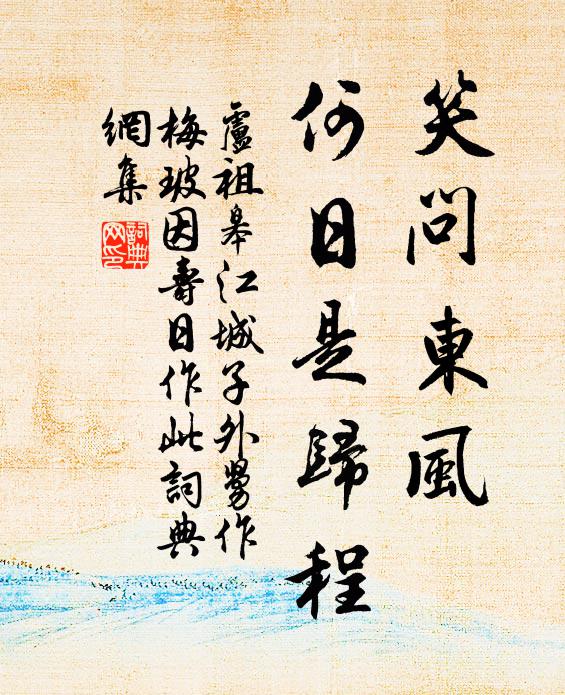 笑問東風
何日是歸程
盧祖皋江城子外舅作
梅玻因壽日作此詞典
網集
詞典網印